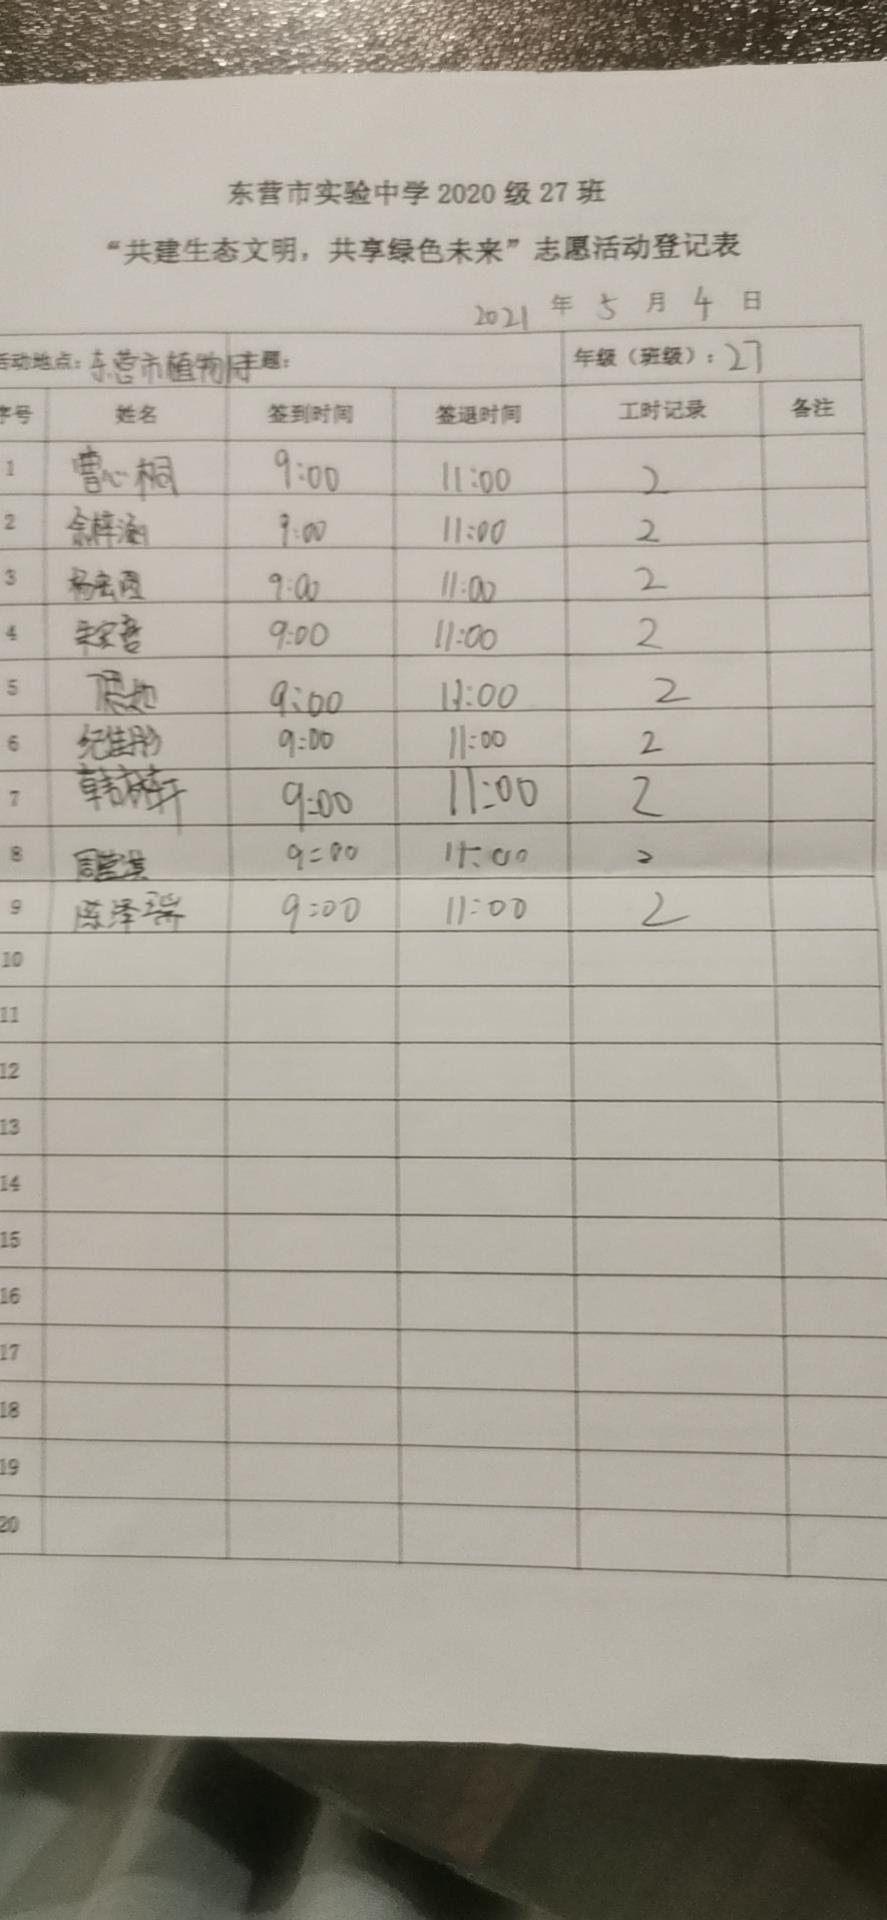 东营市实验中学2020级27班
“共建生态文明，共享绿色未来”志愿活动登记表
2021 年 5 月 4 日
活动地点：东营市植物园 主题： 年级（班级）：27
序号 姓名 签到时间 签退时间 工时记录 备注
1 曹心桐 9:00 11:00 2
2 梓涵 9:00 11:00 2
3 杨 9:00 11:00 2
4 9:00 11:00 2
5 9:00 11:00 2
6 纪佳彤 9:00 11:00 2
7 韩 轩 9:00 11:00 2
8 周 9:00 11:00 2
9 陈泽瑞 9:00 11:00 2
10
11
12
13
14
15
16
17
18
19
20